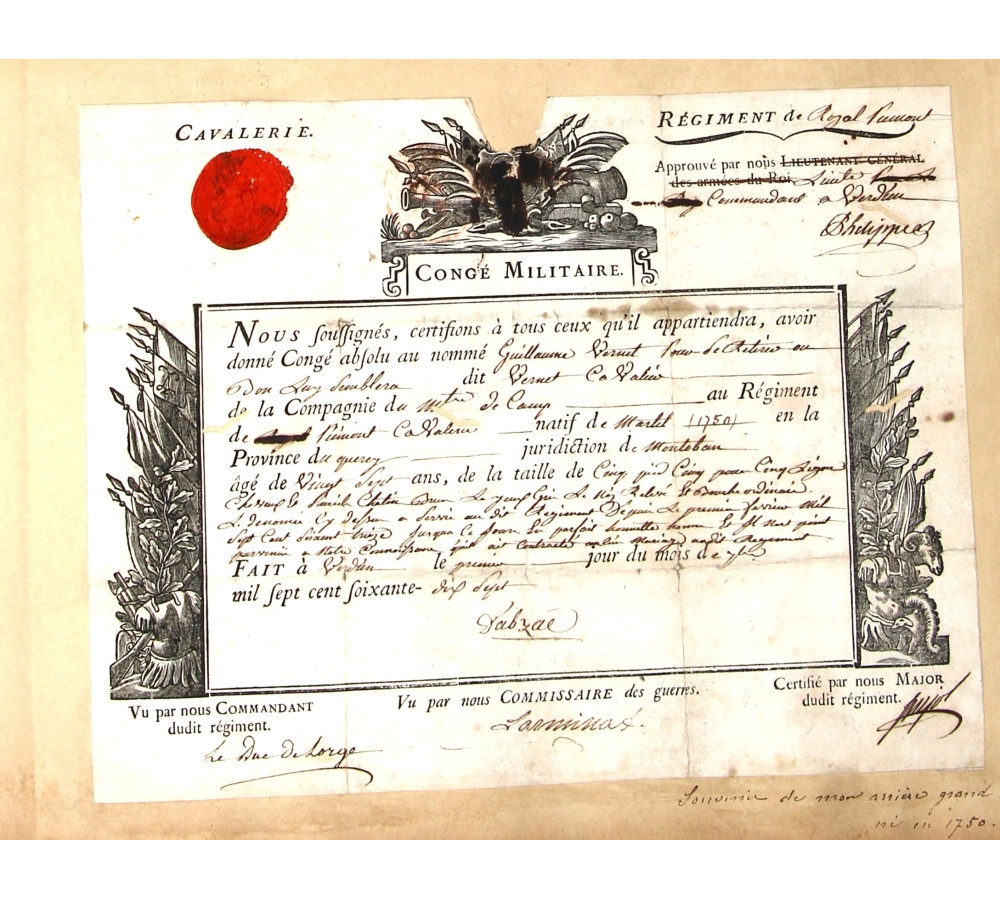 CAVALERIE.
RÉGIMENT de Royal Piemont
Approuvé par nous LIEUTENANT GÉNÉRAL
des armées du Roi
Commandant a Verdun
CONGÉ MILITAIRE.
NOUS souſſignés, certifions à tous ceux qu'il appartiendra, avoir
donné Congé abſolu au nommé Guillaume Vernet pour Se Retirer ou
Bon Luy Semblera dit Vernet CaValier
de la Compagnie du Mtre de Camp au Régiment
de Royal Piémont CaValerie natif de Martel (1750) en la
Province du quercy juridiction de Montoban
âgé de Vingt Sept ans, de la taille de Cinq pied Cinq pouce Cinq Lignes
Cheveux Et Sourcils Brun Le yeux Gris Le Nez Relevé Et Bouche ordinaire.
Le denomé Cy dessus a Servie au dit Regiment Depuis Le premier fevrier Mil
Sept Cent Soixent treize jusqua Ce Jour En parfait honnette homme Et Il Nest point
parvenue a Notre Connoissance quil ait Contracté Mariage audit Regiment
FAIT à Verdun le premier jour du mois de
mil ſept cent ſoixante- dix Sept
Vu par nous COMMANDANT
dudit régiment.
Le Duc de Lorge
Vu par nous COMMISSAIRE des guerres.
Larminat
Certifié par nous MAJOR
dudit régiment.
Souvenir de mon arrière grand
né en 1750.